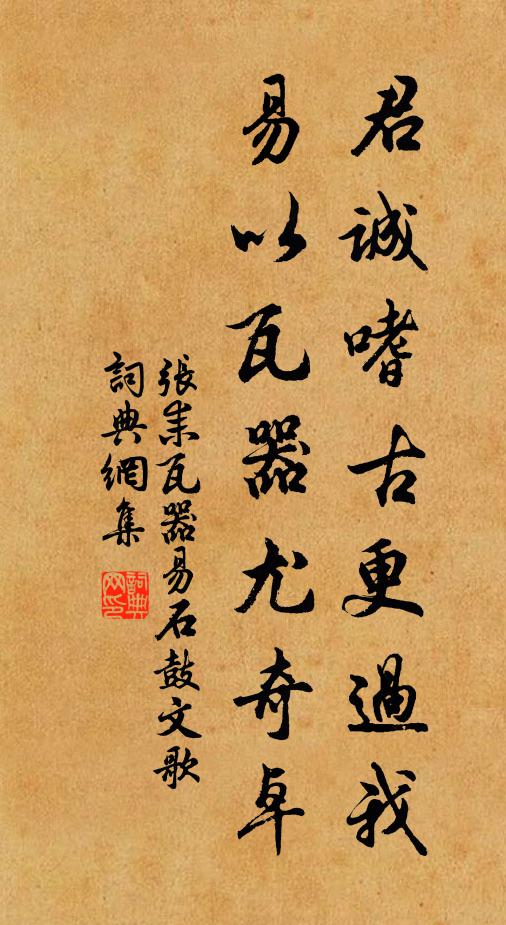 君誠嗜古更過我
易以瓦器尤奇卓
張耒瓦器易石鼓文歌
詞典網集
詞典
网印